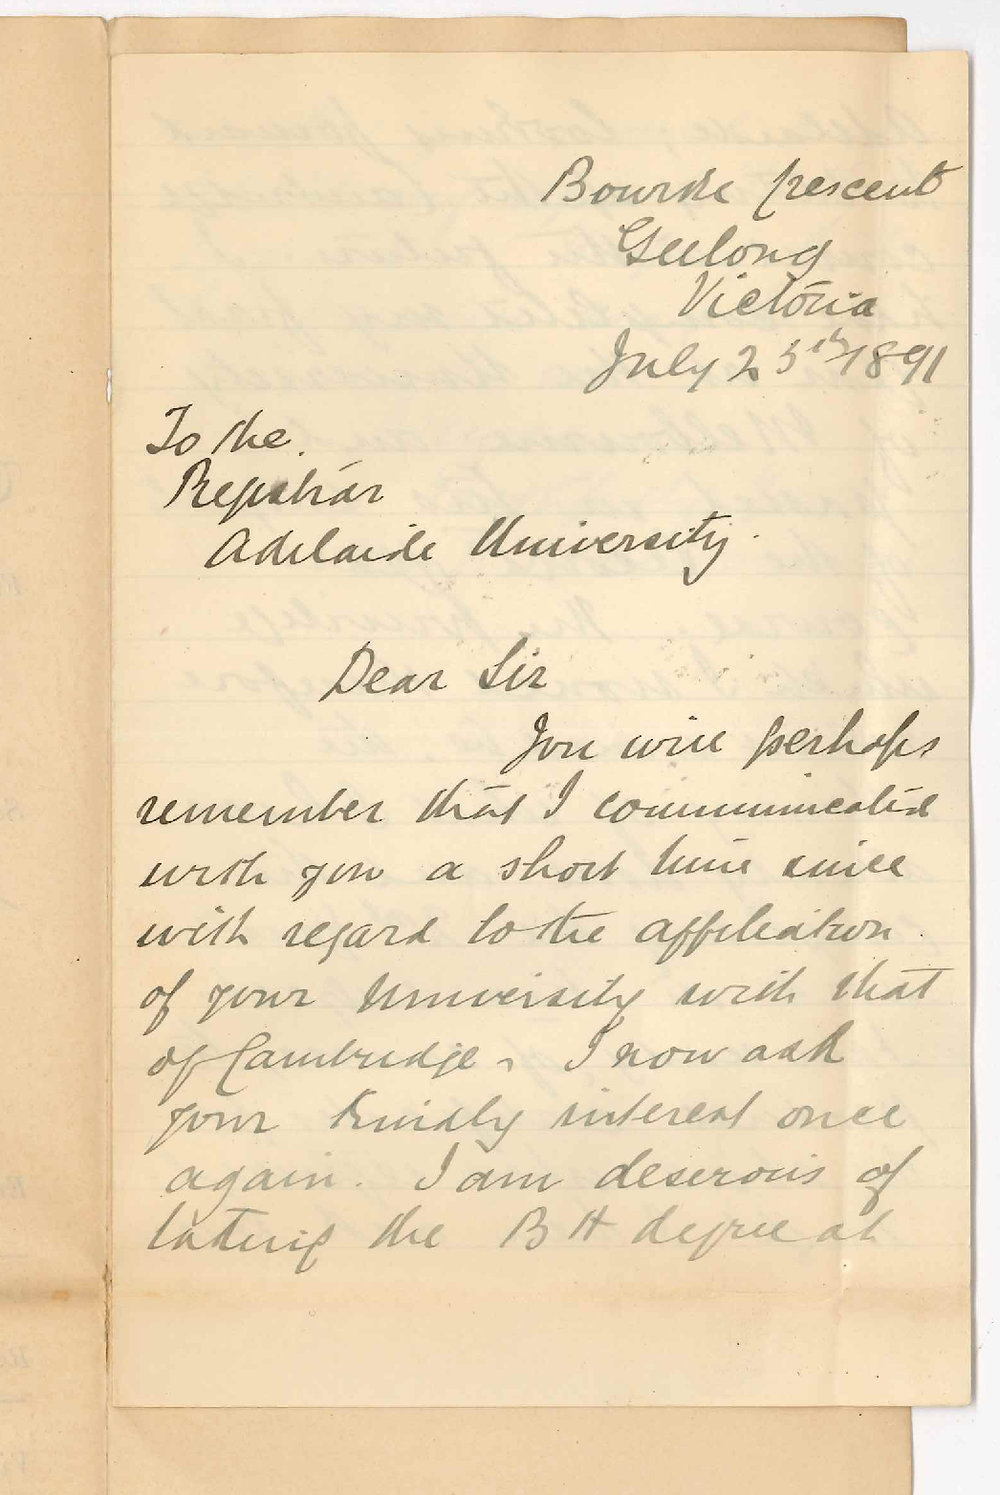 Bourke Crescent
Geelong
Victoria
July 25th 1891
To the
Registrar
Adelaide University.
Dear Sir
You will perhaps
remember that I communicated
with you a short time since
with regard to the affiliation
of your University with that
of Cambridge. I now ask
your kindly interest once
again. I am deserous of
taking the B A degree at